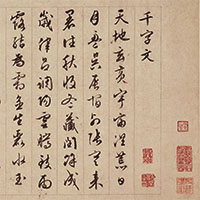 千字文
天地玄黃宇宙洪荒日
月盈昃辰宿列張寒来
暑往秋收冬藏閏餘成
歲律呂調陽雲騰致雨
露結為霜金生麗水玉